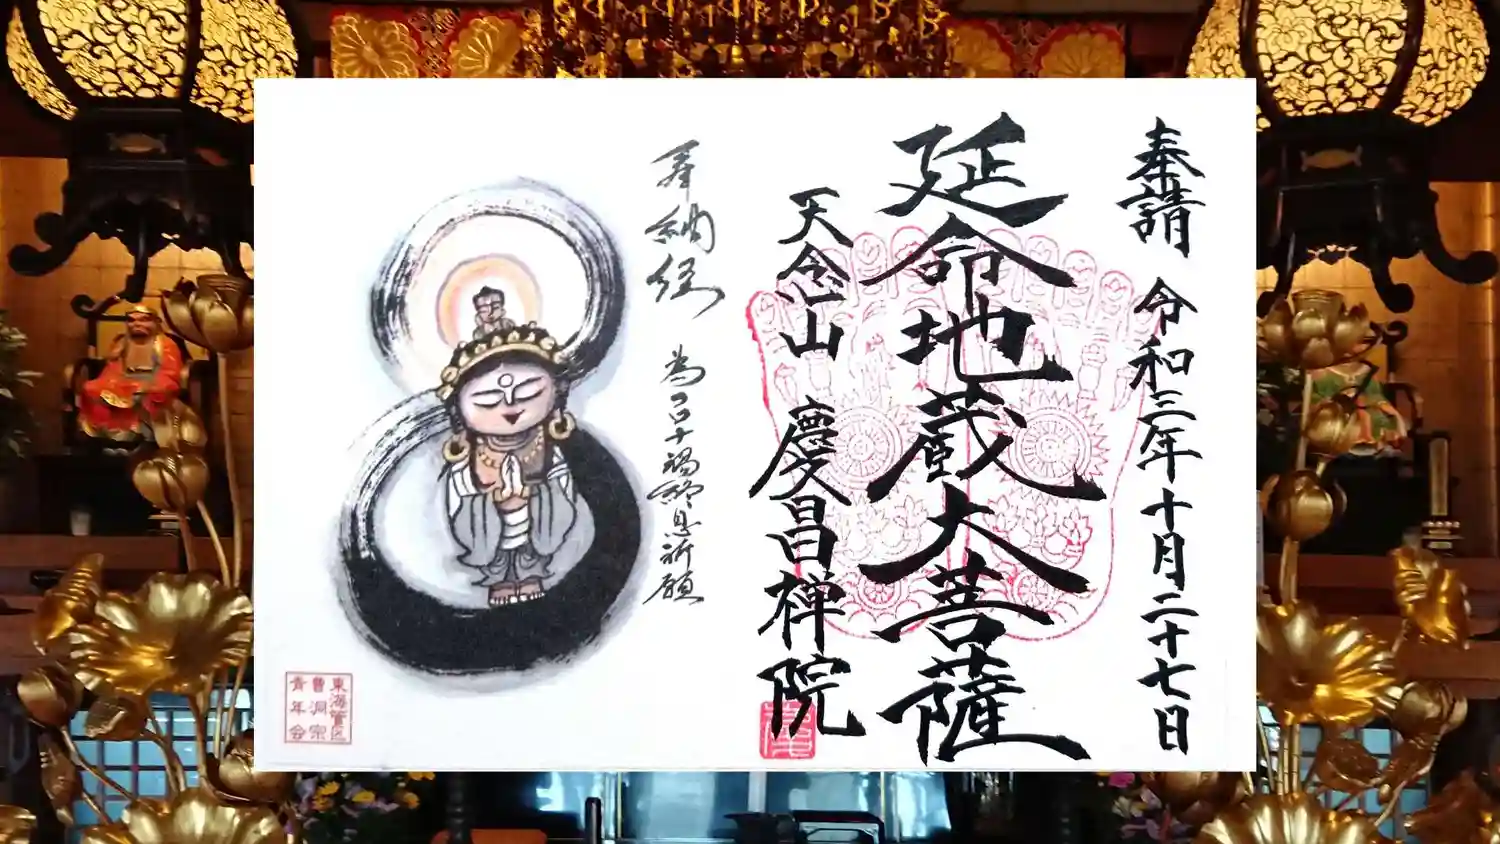 奉請 令和三年十月二十七日
延命地蔵大菩薩
天念山 慶昌禅院
奉納経 為コロナ禍終息祈願
東海管区
曹洞宗
青年会